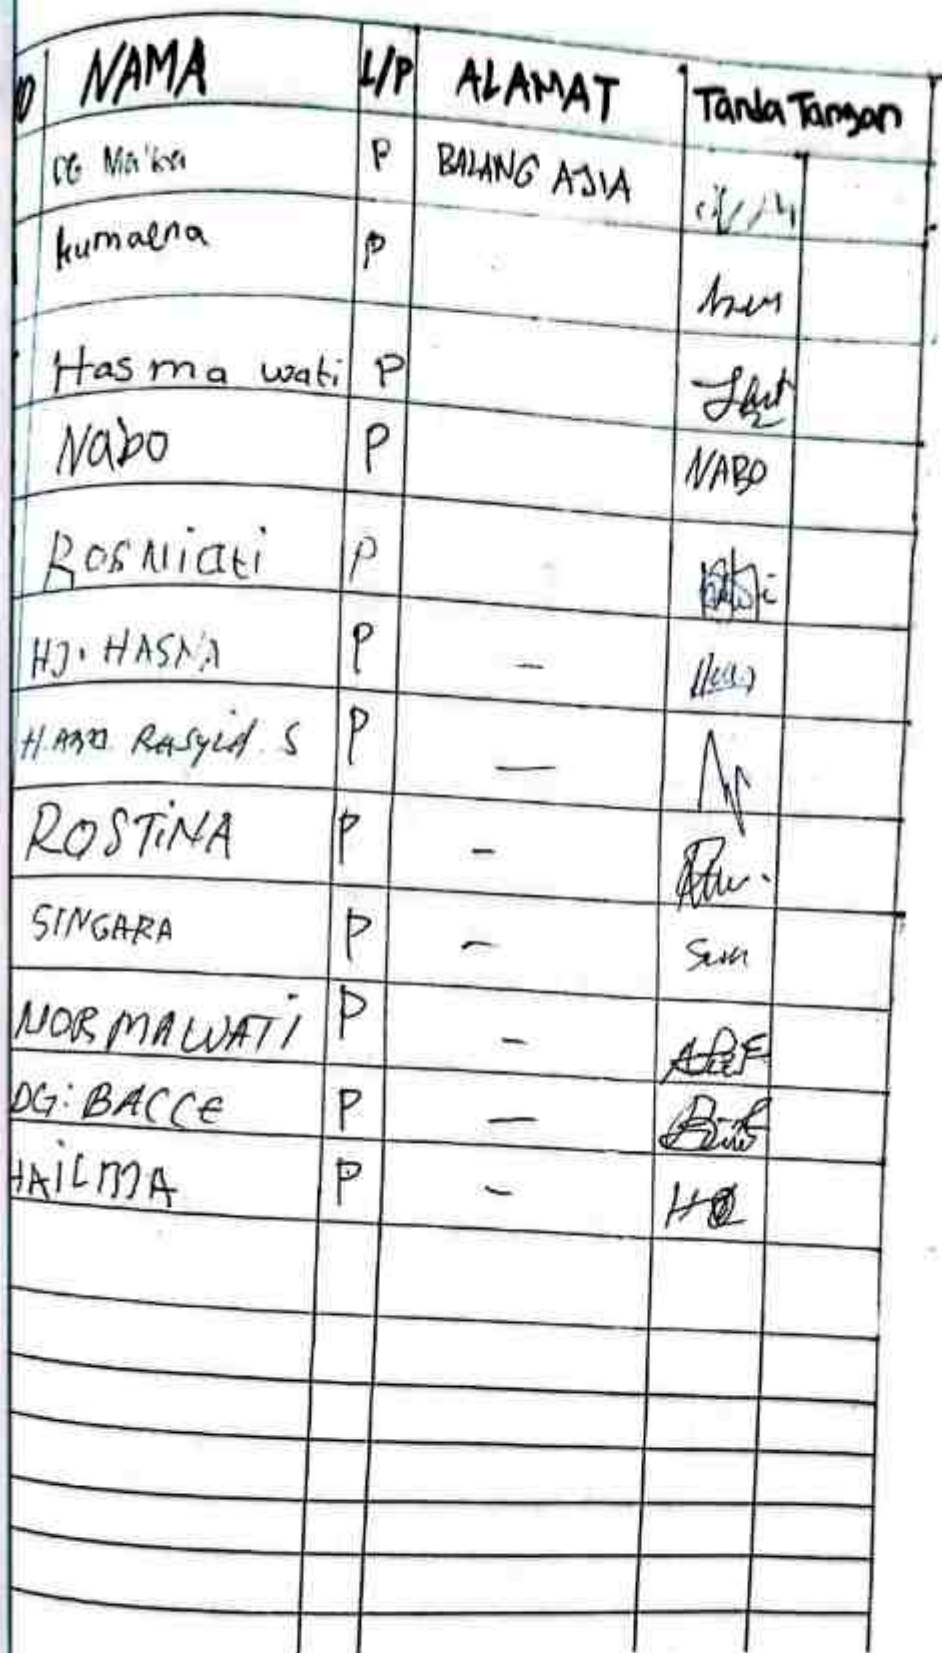 NAMA L/P ALAMAT Tanda Tangan
DG Ma'ka P BALANG ASIA
kumaena P
Hasma wati P
Nabo P NABO
Rosniati P
HJ. HASNA P -
H. Rasyid S P -
ROSTINA P -
SINGARA P -
NORMAWATI P -
DG: BACCE P -
HAILMA P -